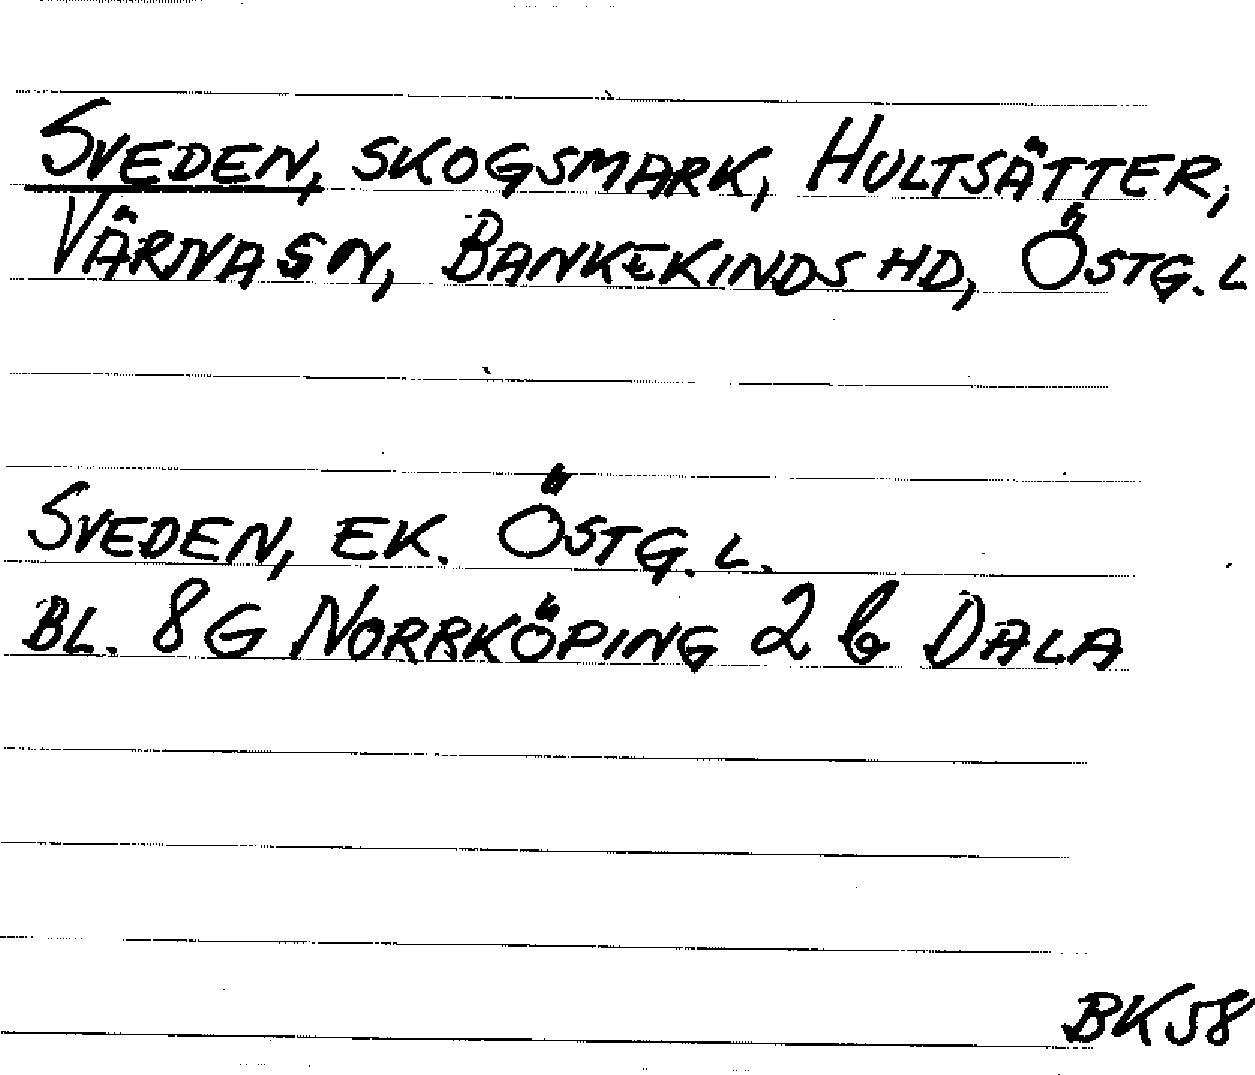 SVEDEN, SKOGSMARK, HULTSÄTTER,
VÄRNA SN, BANKEKINDS HD, ÖSTG. L
SVEDEN, EK. ÖSTG. L.
BL. 8G NORRKÖPING 2 b DALA
BK58